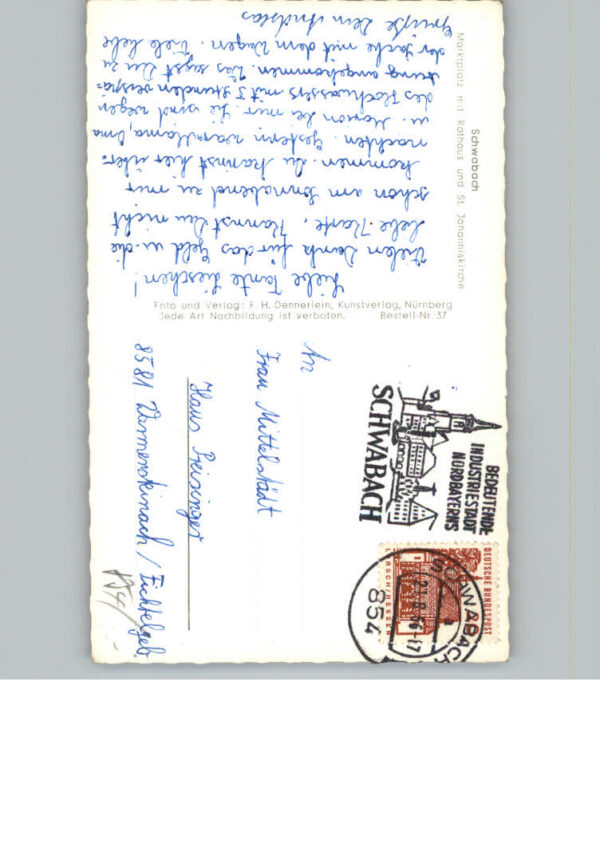 Schwabach
Marktplatz mit Rathaus und St. Johanniskirche
Liebe Tante Lieschen!
Vielen Dank für das Geld u. die
liebe Karte. Kannst Du nicht
schon am Sonnabend zu mir
kommen. Du kannst hier über-
nachten. Gestern war Mama, Oma
u. bei mir. Sie sind wegen
des Hochwassers mit 3 Stunden verspä-
tung angekommen. Das sagst Du zu
der Sache mit dem Wagen. Viele liebe
Grüße Dein Andreas
Foto und Verlag: F. H. Dennerlein, Kunstverlag, Nürnberg
Jede Art Nachbildung ist verboten. Bestell-Nr. 37
An
Frau Mittelstädt
Haus Preisinger
8581 Warmensteinach / Fichtelgeb.
BEDEUTENDE
INDUSTRIESTADT
NORDBAYERNS
SCHWABACH
DEUTSCHE BUNDESPOST
SCHWABACH
854